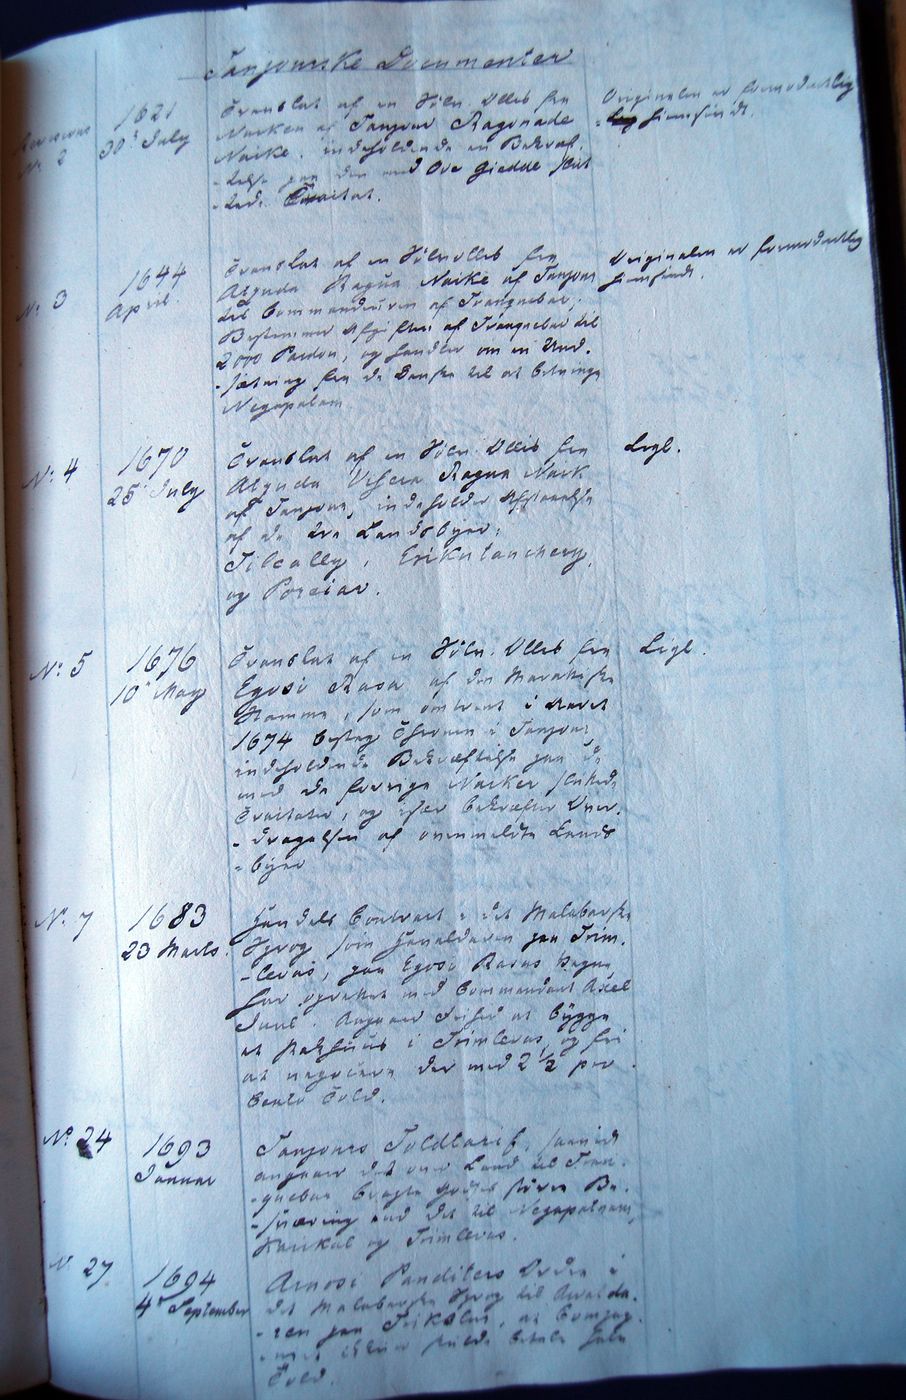 Tanjourske Documenter
No 2
1621
30t July
Translat af en Sölv. Ollis fra
Naiken af Tanjour Ragonade
Naike, indeholdende en Bekræf-
-telse paa den med Ove Giedde slut
-tede Tractat.
Originalen er formodentlig
hiemsendt.
No 3
1644
April.
Translat af en Sölv ollis fra
Atzuda Ragua Naike af Tanjour
til Commandeuren af Tranquebar;
Bestemmer Afgiften af Tranquebar til
2000 Pardou, og handler om en Und-
-sætning fra de Danske til at betvinge
Negapatam
Originalen er formodentlig
hiemsendt.
No 4
1670
25t July
Translat af en Sölv. Ollis fra
Atzuda Ragua Naik
af Tanjour, indeholder Afstaaelse
af de tre Landsbyer:
Tilcally, Erikutanchery,
og Poreiar.
Ligl.
No 5
1676
10t May
Translat af en Sölv. Ollis fra
Egosi Rasa af den Marattiske
Stamme, som omtrent i Aaret
1674 besteg Thronen i Tanjour,
indeholdende Bekræftelse paa de
med de forrige Naiker sluttede
Tractater, og især bekræfter Over-
-dragelsen af ovenmeldte Lands
-byer
Ligl.
No 7
1683
23 Marts.
Handels Contract i det Malabarske
Sprog som Havaldaren paa Trim-
-levas, paa Egosi Rasas Vegne
har oprettet med Commandant Axel
Juel. Angaaer Frihed at bygge
et Pakhuus i Trimlevas, og frie
at negociere der med 2 1/2 per
Cento Told.
No 24
1693
Januar
Tanjours Toldtarif, saavidt
angaaer det over Land til Tran-
-quebar bragte Godses större Be-
-sværing end det til Negapatnam,
Karikal og Trimlevas.
N 27
1694
4t September
Amosi Panditers Ordre i
det Malabarske Sprog til Avalda-
-ren paa Trikolur, at Compag-
-niet skulde betale halv
Told.